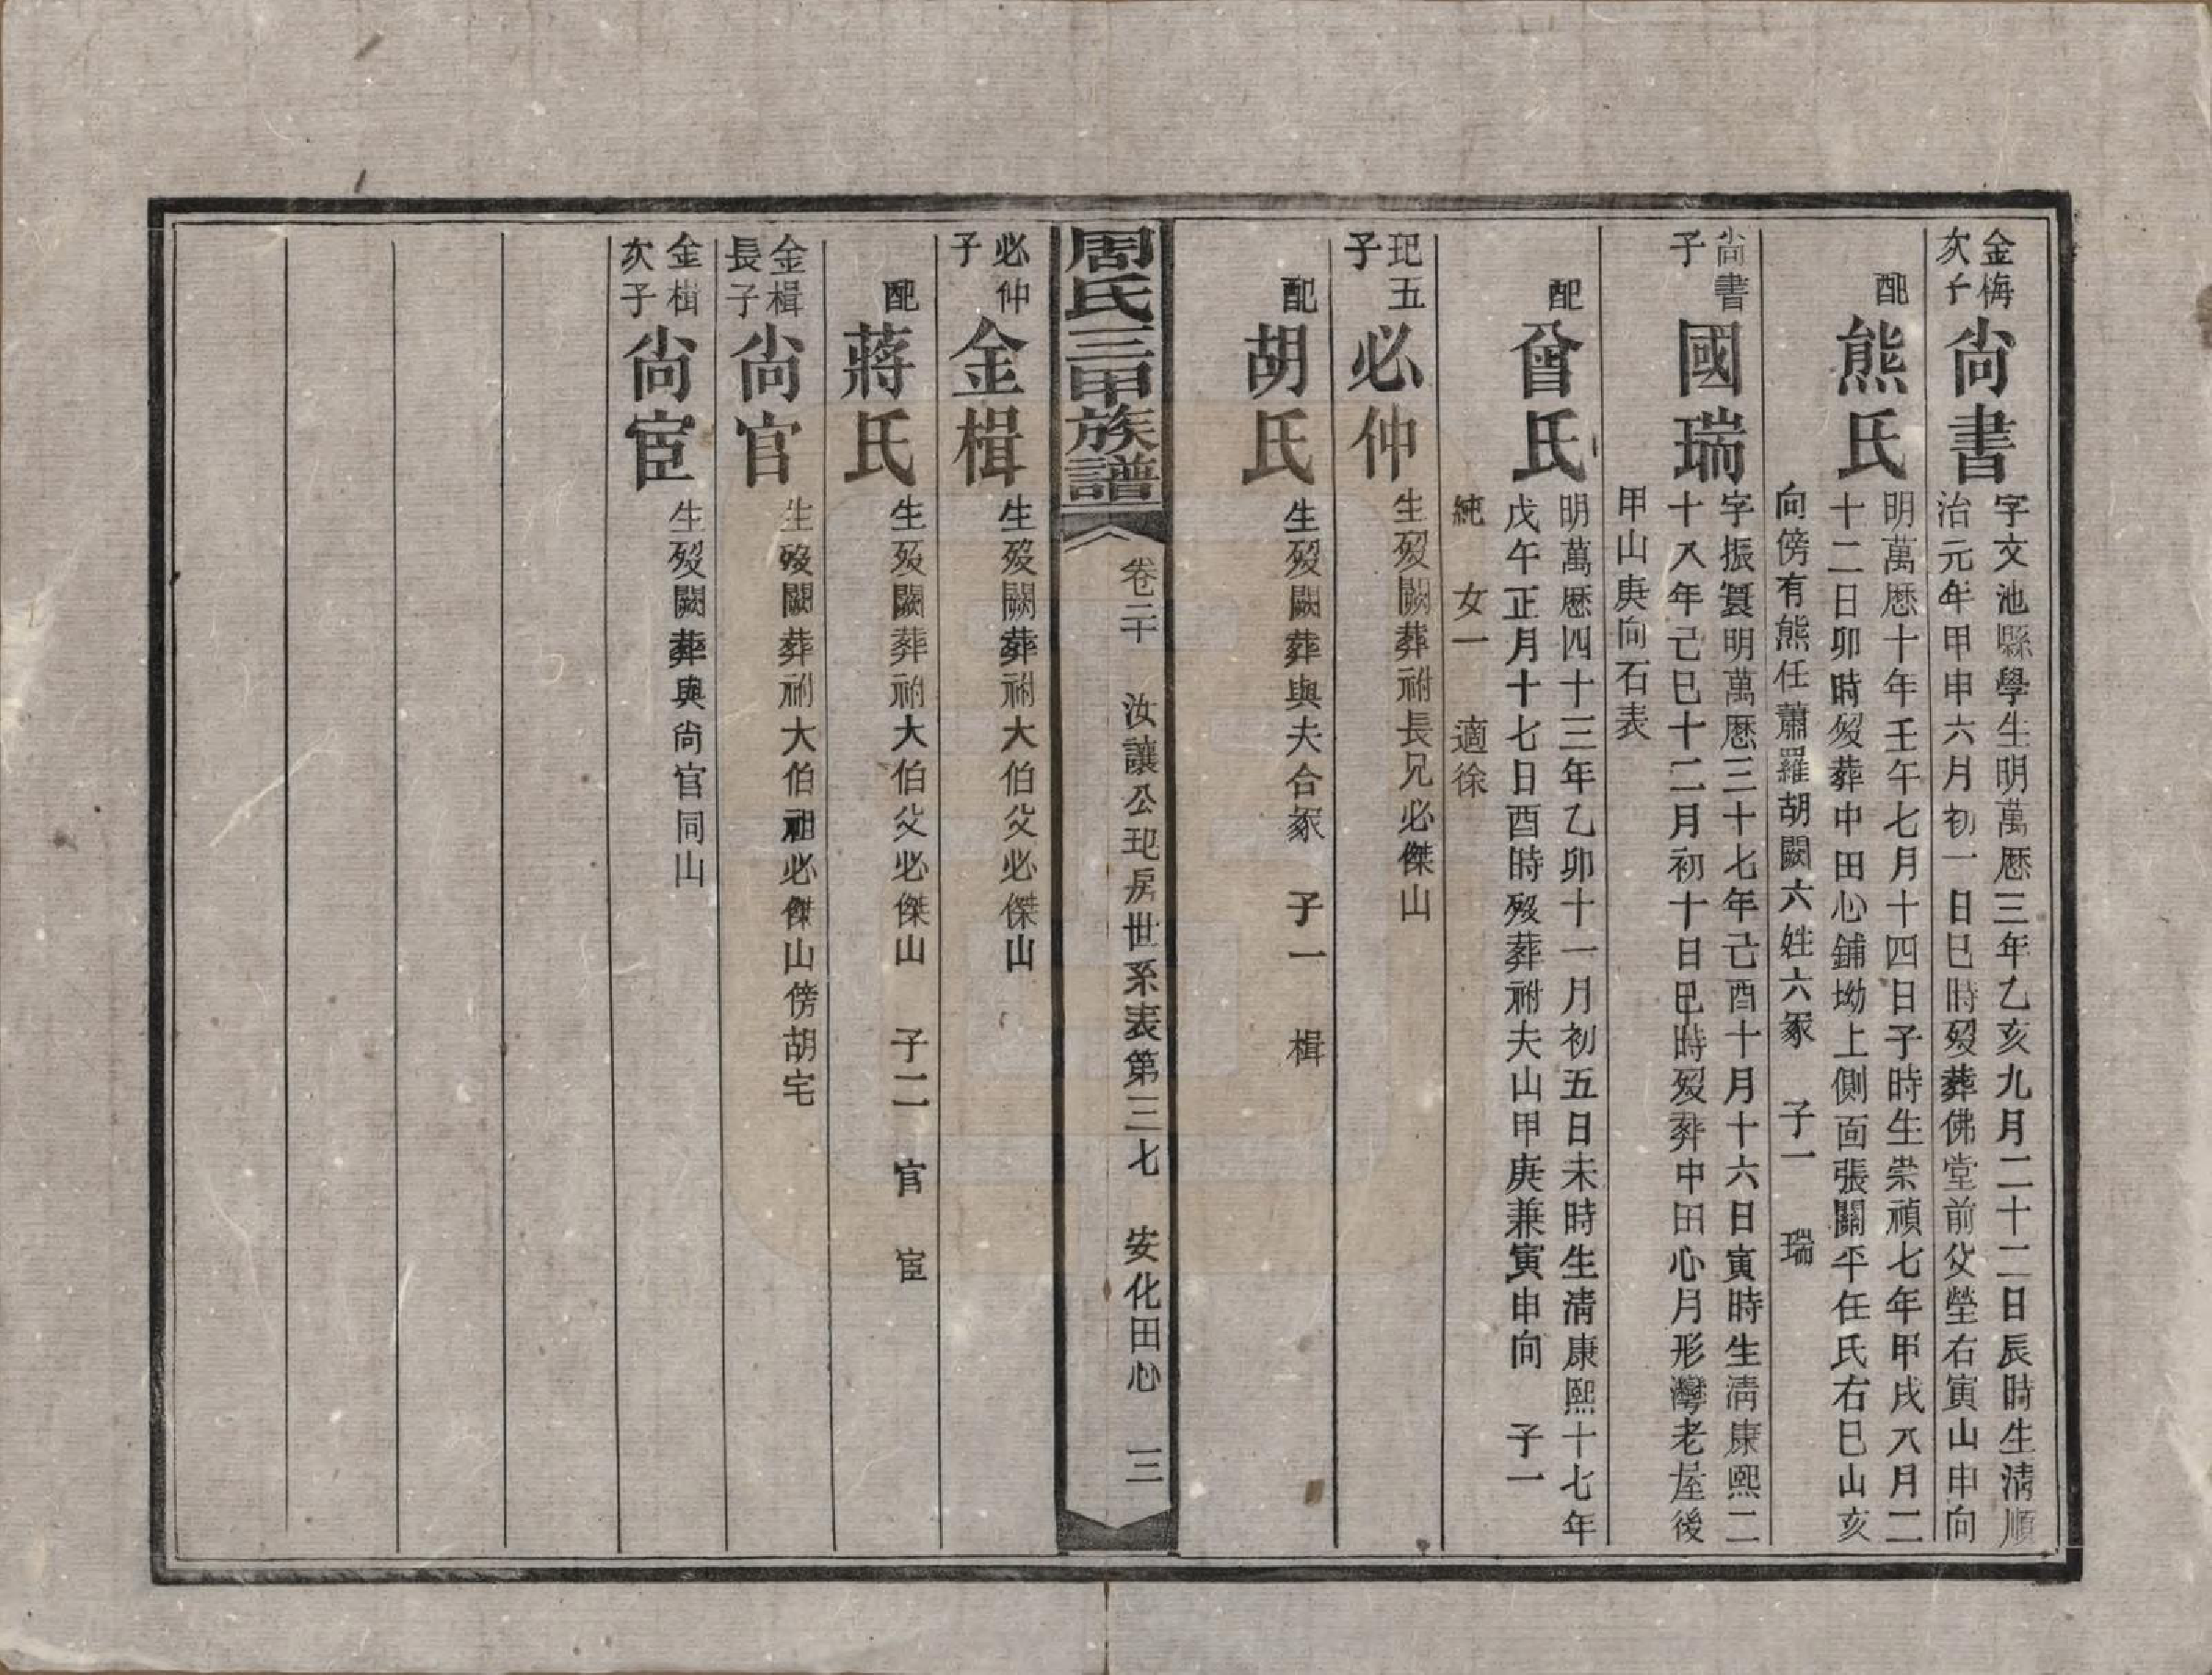 金梅
次子
尙書
字文池縣學生明萬厯三年乙亥九月二十二日辰時生清順
治元年甲申六月初一日巳時歿葬佛堂前父塋右寅山申向
配
熊氏
明萬厯十年壬午七月十四日子時生崇禎七年甲戌八月二
十二日卯時歿葬中田心鋪坳上側面張關平任氏右巳山亥
向傍有熊任蕭羅胡闕六姓六冢 子一 瑞
尙書
子
國瑞
字振寰明萬厯三十七年己酉十月十六日寅時生清康熙二
十八年己巳十二月初十日巳時歿葬中田心月形灣老屋後
甲山庚向石表
配
曾氏
明萬厯四十三年乙卯十一月初五日未時生清康熙十七年
戊午正月十七日酉時歿葬祔夫山甲庚兼寅申向 子一
純 女一 適徐
玘五
子
必仲
生歿闕葬祔長兄必傑山
配
胡氏
生歿闕葬與夫合冢 子一 楫
周氏三甲族譜
卷二十 汝讓公玘房世系表第三七 安化田心 三
必仲
子
金楫
生歿闕葬祔大伯父必傑山
配
蔣氏
生歿闕葬祔大伯父必傑山 子二 官 宦
金楫
長子
尙官
生歿闕葬祔大伯祖必傑山傍胡宅
金楫
次子
尙宦
生歿闕葬與尙官同山